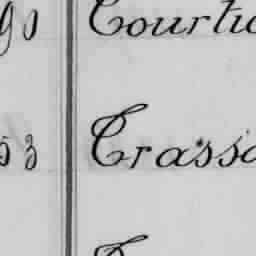 90 Courtio
53 Crassa